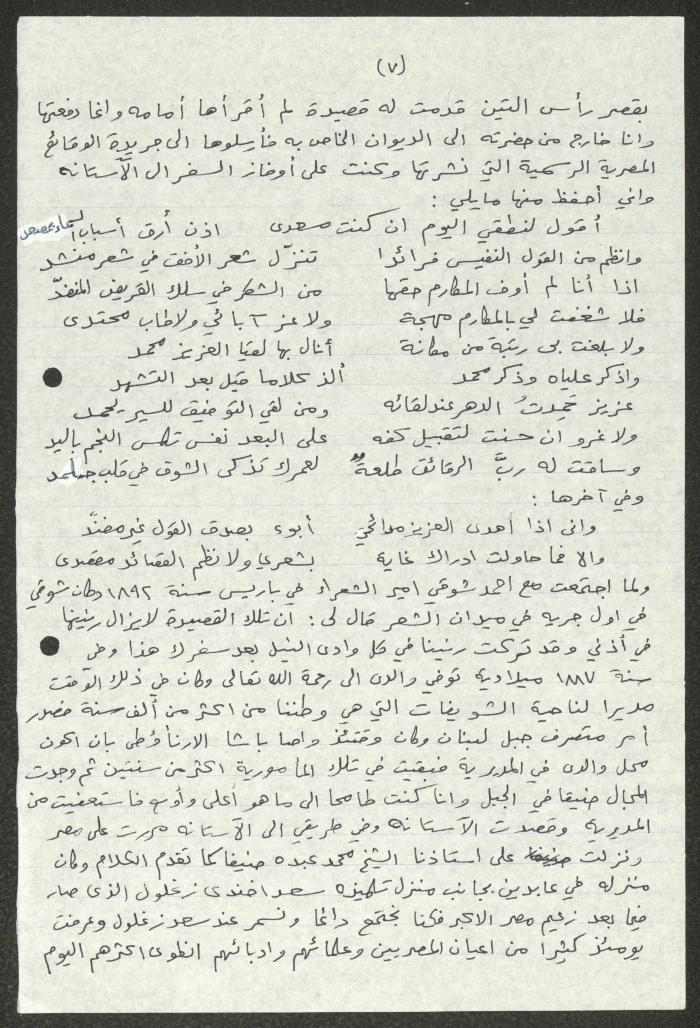 (٧)
بقصر رأس التين قدمت له قصيدة لم أقرأها أمامه وانما دفعتها
وانا خارج من حضرته الى الديوان الخاص به فأرسلوها الى جريدة الوقائع
المصرية الرسمية التي نشرتها وكنت على أوفاز السفر الى الآستانه
واني أحفظ منها مايلي :
أقول لنطقي اليوم ان كنت مسعدى اذن أرق أسباب السماء بمصعد
وانظم من القول النفيس فرائدا تنزّل شعر الأفق في شعر منشد
اذا أنا لم أوف المكارم حقها من الشكر في سلك القريض المنضّد
فلا شغفت لي بالمكارم مهجة ولا عز آبائي ولا طاب محتدى
ولا بلغت بى رتبة من مكانة أنال بها لقيا العزيز محمد
واذكر علياه وذكر محمد ألذ كلاما قيل بعد التشهد
عزيز حمدتُ الدهر عند لقائه ومن لقي التوفيق للسير يحمد
ولا غرو ان حنت لتقبيل كفه على البعد نفس تلمس النجم باليد
وساقت له ربَّ الرقائق طلعةٌ لعمرك تذكى الشوق في قلب جلمد
وفي آخرها :
وانى اذا أهدى العزيز مدائحي أبوء بصدق القول غير مفنَّد
والا فما حاولت ادراك غاية بشعري ولا نظم القصائد مقصدى
ولما اجتمعت مع احمد شوقي امير الشعراء في باريس سنة ١٨٩٢ وكان شوقي
في اول جريه في ميدان الشعر قال لى : ان تلك القصيدة لا يزال رنينها
في أذني وقد تركت رنينا في كل وادى النيل بعد سفرك هذا وفي
سنة ١٨٨٧ ميلادية توفي والدى الى رحمة الله تعالى وكان في ذلك الوقت
مديرا لناحية الشويفات التي هي وطننا من اكثر من ألف سنة فصدر
أمر متصرف جبل لبنان وكان وقتئذ واصا باشا الارنأوطى بان اكون
محل والدى في المديرية فبقيت في تلك المأمورية اكثر من سنتين ثم وجدت
المجال ضيقا في الجبل وانا كنت طامحا الى ما هو أعلى وأوسع فاستعفيت من
المديرية وقصدت الآستانه وفي طريقي الى الآستانه مررت على مصر
ونزلت على استاذنا الشيخ محمد عبده ضيفا كما تقدم الكلام وكان
منزله في عابدين بجانب منزل تلميذه سعد افندى زغلول الذى صار
فيما بعد زعيم مصر الاكبر فكنا نجتمع دائما ونسمر عند سعد زغلول وعرفت
يومئذ كثيرا من اعيان المصريين وعلمائهم وادبائهم انطوى اكثرهم اليوم